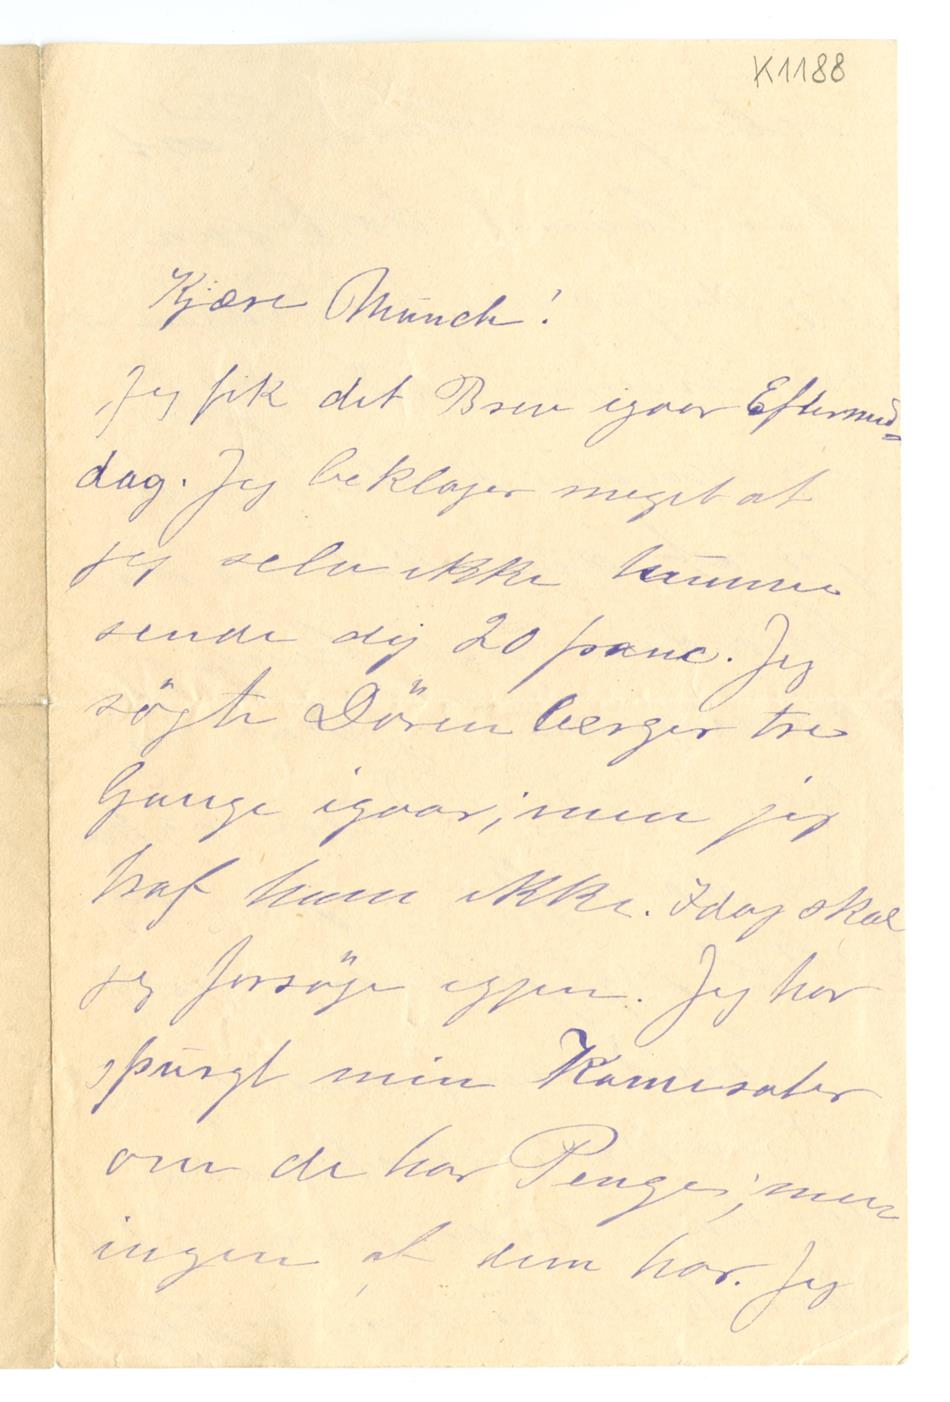 K1188
Kjære Munch!
Jeg fik det Brev igaar Eftermid=
dag. Jeg beklager meget at
jeg selv ikke kunne
sende dig 20 franc. Jeg
søgte Dörenberger tre
Gange igaar; men jeg
traf ham ikke. Idag skal
jeg forsöge igjen. Jeg har
spurgt min Kamerater
om de har Penge; men
ingen af dem har. Jeg